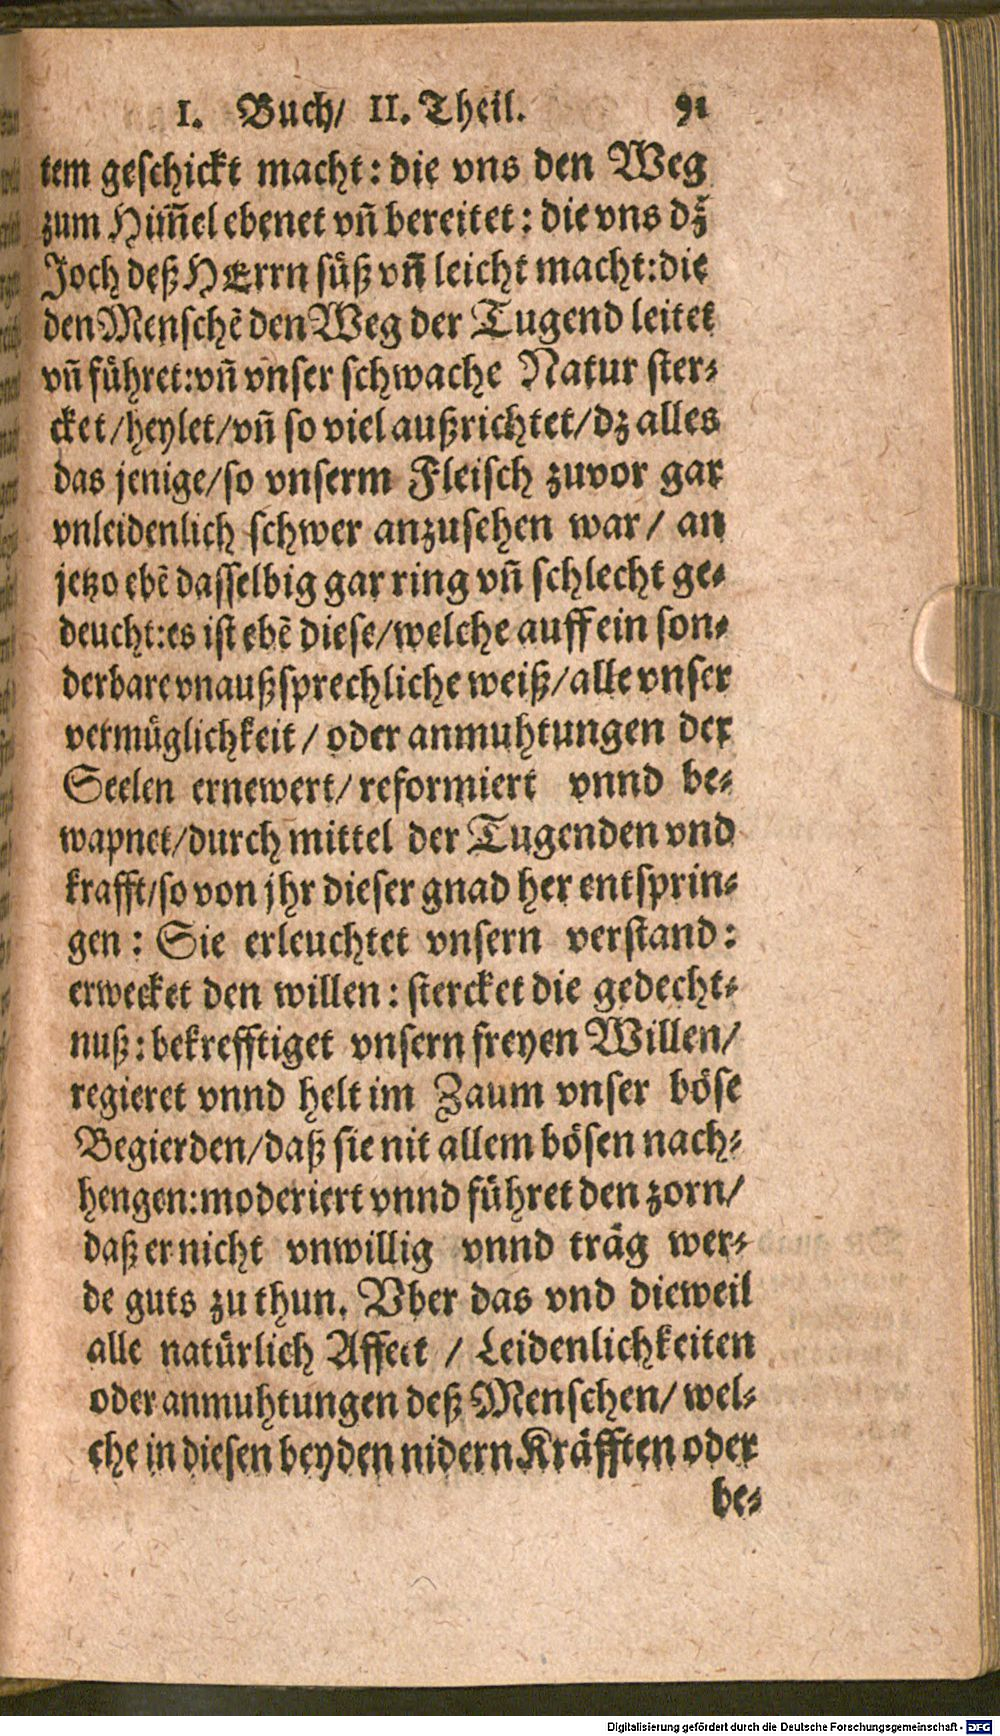 I. Buch/ II. Theil. 91
tem geschickt macht: die vns den Weg
zum Him̃el ebenet vñ bereitet: die vns dz̃
Joch deß HErrn süß vñ leicht macht: die
den Menschẽ den Weg der Tugend leitet
vñ führet: vñ vnser schwache Natur ster-
cket/heylet/vñ so viel außrichtet/dz alles
das jenige/so vnserm Fleisch zuvor gar
vnleidenlich schwer anzusehen war/ an
jetzo ebẽ dasselbig gar ring vñ schlecht ge-
deucht: es ist ebẽ diese/welche auff ein son-
derbare vnaußsprechliche weiß/alle vnser
vermüglichkeit/ oder anmuhtungen der
Seelen ernewert/ reformiert vnnd be-
wapnet/durch mittel der Tugenden vnd
krafft/so von jhr dieser gnad her entsprin-
gen: Sie erleuchtet vnsern verstand:
erwecket den willen: stercket die gedecht-
nuß: bekrefftiget vnsern freyen Willen/
regieret vnnd helt im Zaum vnser böse
Begierden/daß sie nit allem bösen nach-
hengen: moderiert vnnd führet den zorn/
daß er nicht vnwillig vnnd träg wer-
de guts zu thun. Vber das vnd dieweil
alle natürlich Affect / Leidenlichkeiten
oder anmuhtungen deß Menschen/ wel-
che in diesen beyden nidern Kräfften oder
be-
Digitalisierung gefördert durch die Deutsche Forschungsgemeinschaft - DFG